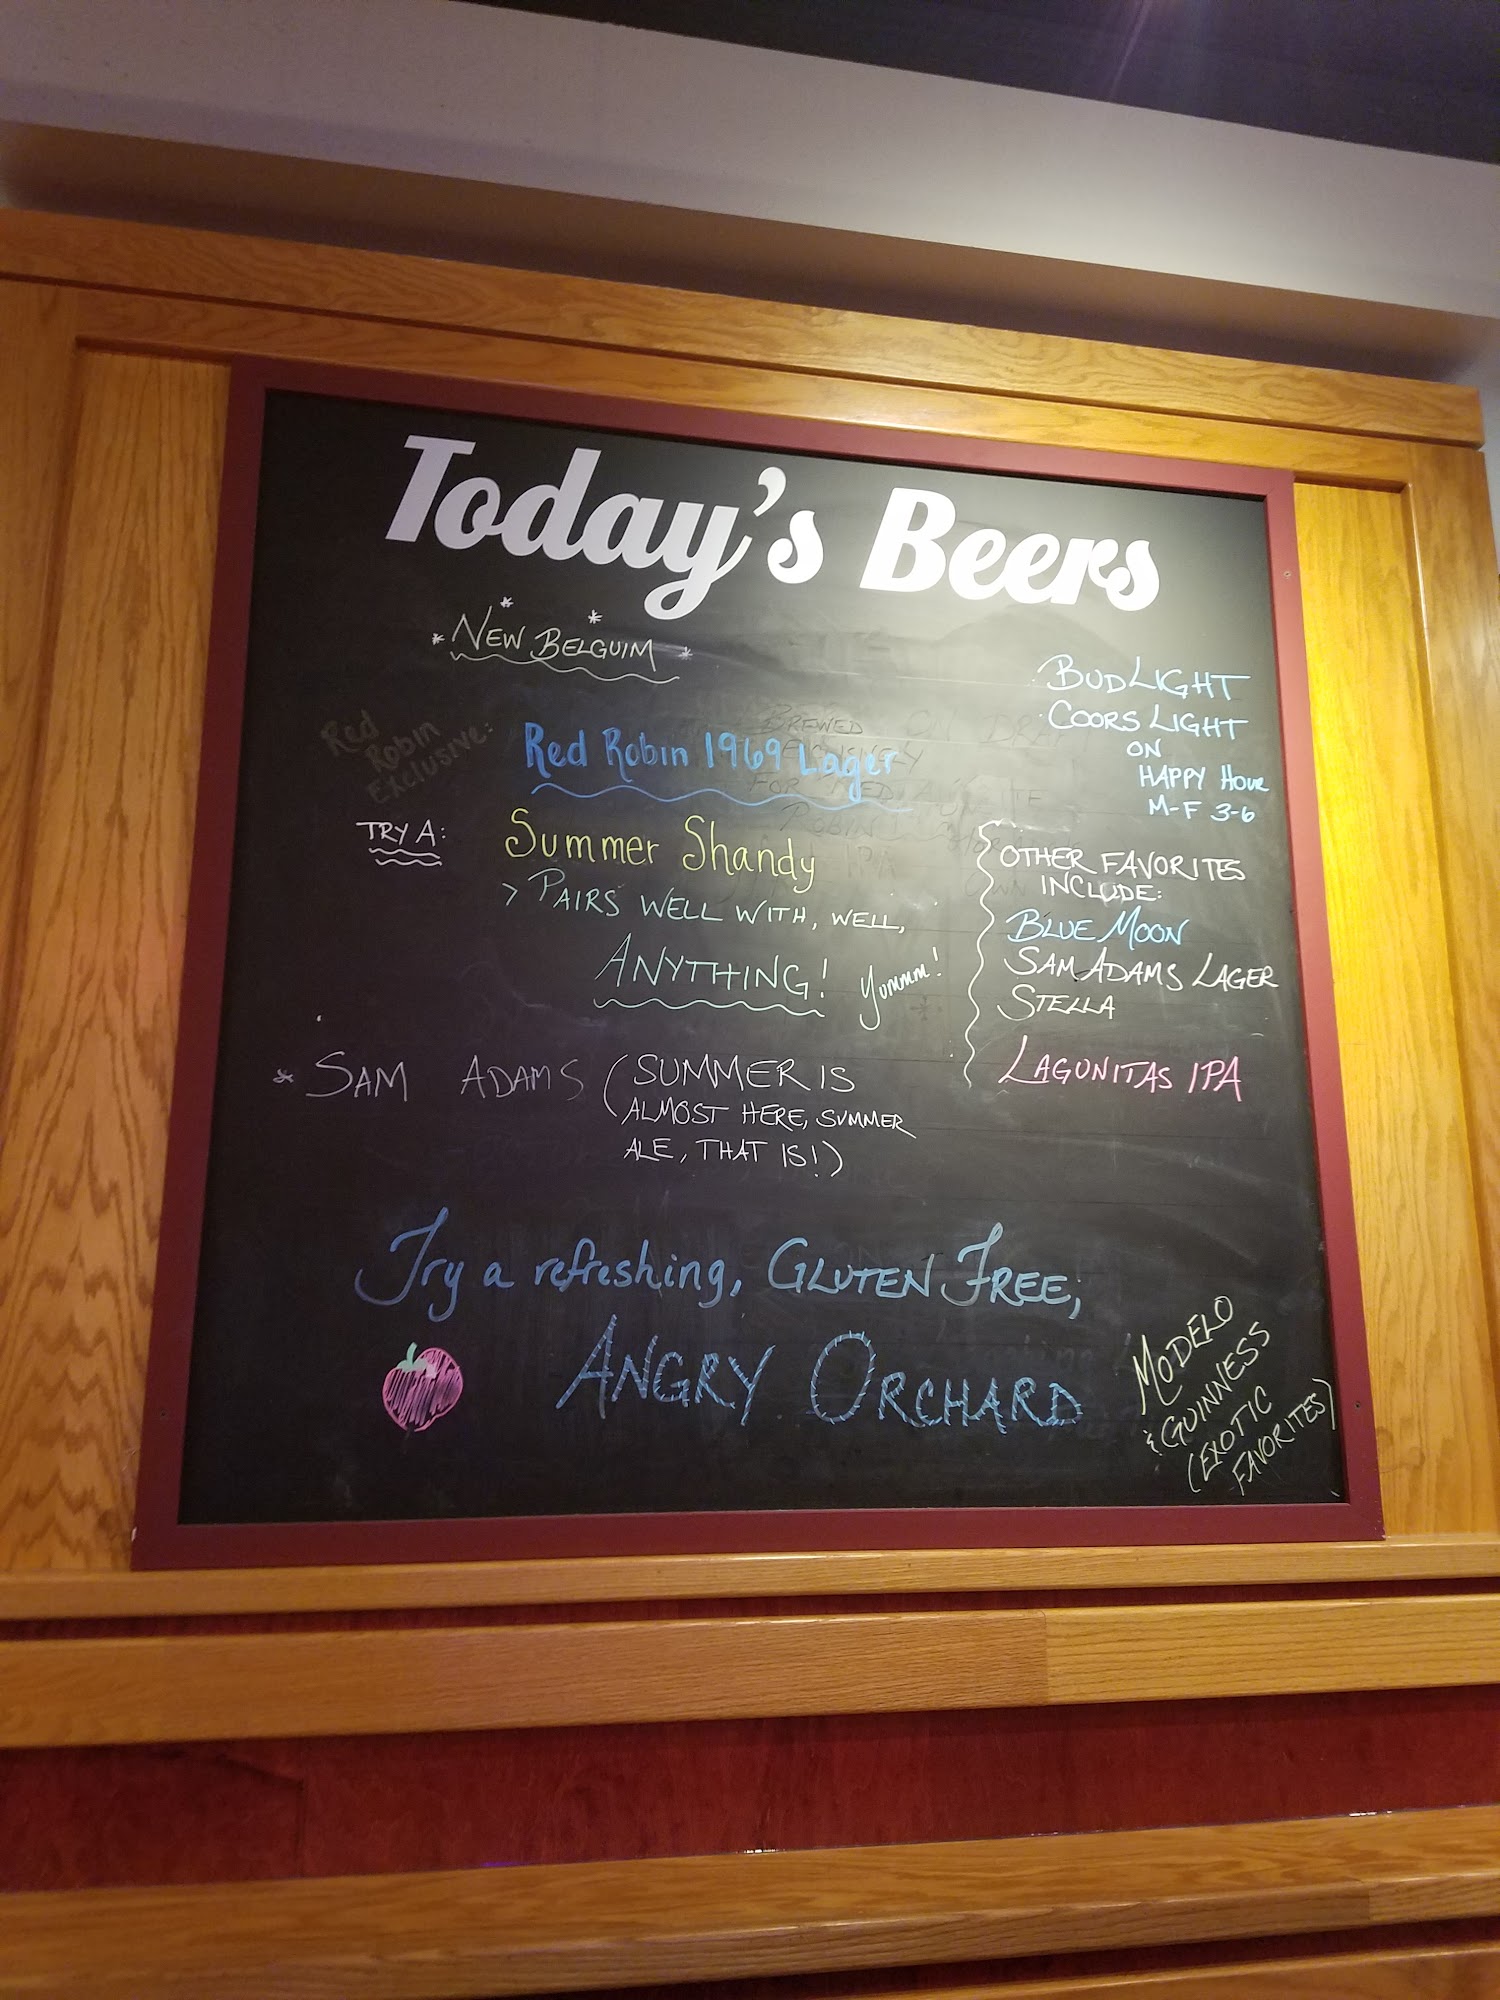 Today's Beers
* NEW BELGUIM *
Red Robin Exclusive:
Red Robin 1969 Lager
TRY A:
Summer Shandy
> PAIRS WELL WITH, WELL,
ANYTHING! Yummm!
* SAM ADAMS (SUMMER IS
ALMOST HERE, SUMMER
ALE, THAT IS!)
BUD LIGHT
COORS LIGHT
ON
HAPPY HOUR
M-F 3-6
OTHER FAVORITES
INCLUDE:
BLUE MOON
SAM ADAMS LAGER
STELLA
LAGUNITAS IPA
Try a refreshing, GLUTEN FREE,
ANGRY ORCHARD
MODELO
& GUINNESS
(EXOTIC
FAVORITES)